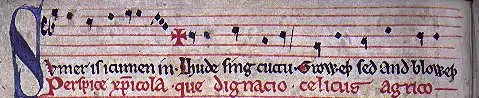 Sumer is icumen in · Lhude sing cuccu · Groweþ sed and bloweþ
Perspice xp̄icola · que dignacio celicus agrico